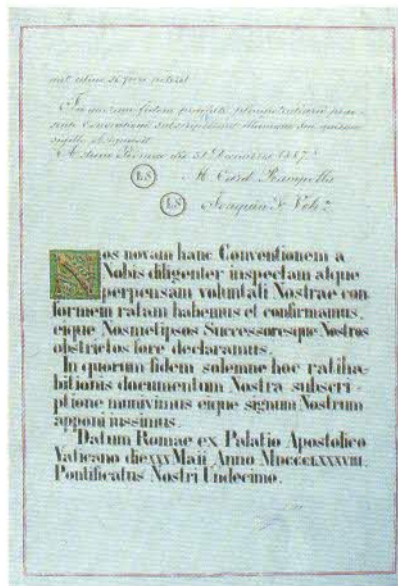 Actum Romae die 31 Decembris 1887.
LS M. Card. Rampolla
LS Joaquin F. Velez
Nos novam hanc Conventionem a
Nobis diligenter inspectam atque
perpensam voluntati Nostrae con-
formem ratam habemus et confirmamus,
eique Nosmetipsos Successoresque Nostros
obstrictos fore declaramus.
In quorum fidem solemne hoc ratiha-
bitionis documentum Nostra subscri-
ptione munivimus eique signum Nostrum
apponi iussimus.
Datum Romae ex Palatio Apostolico
Vaticano die XXX Maii Anno MDCCCLXXXVIII.
Pontificatus Nostri Undecimo.